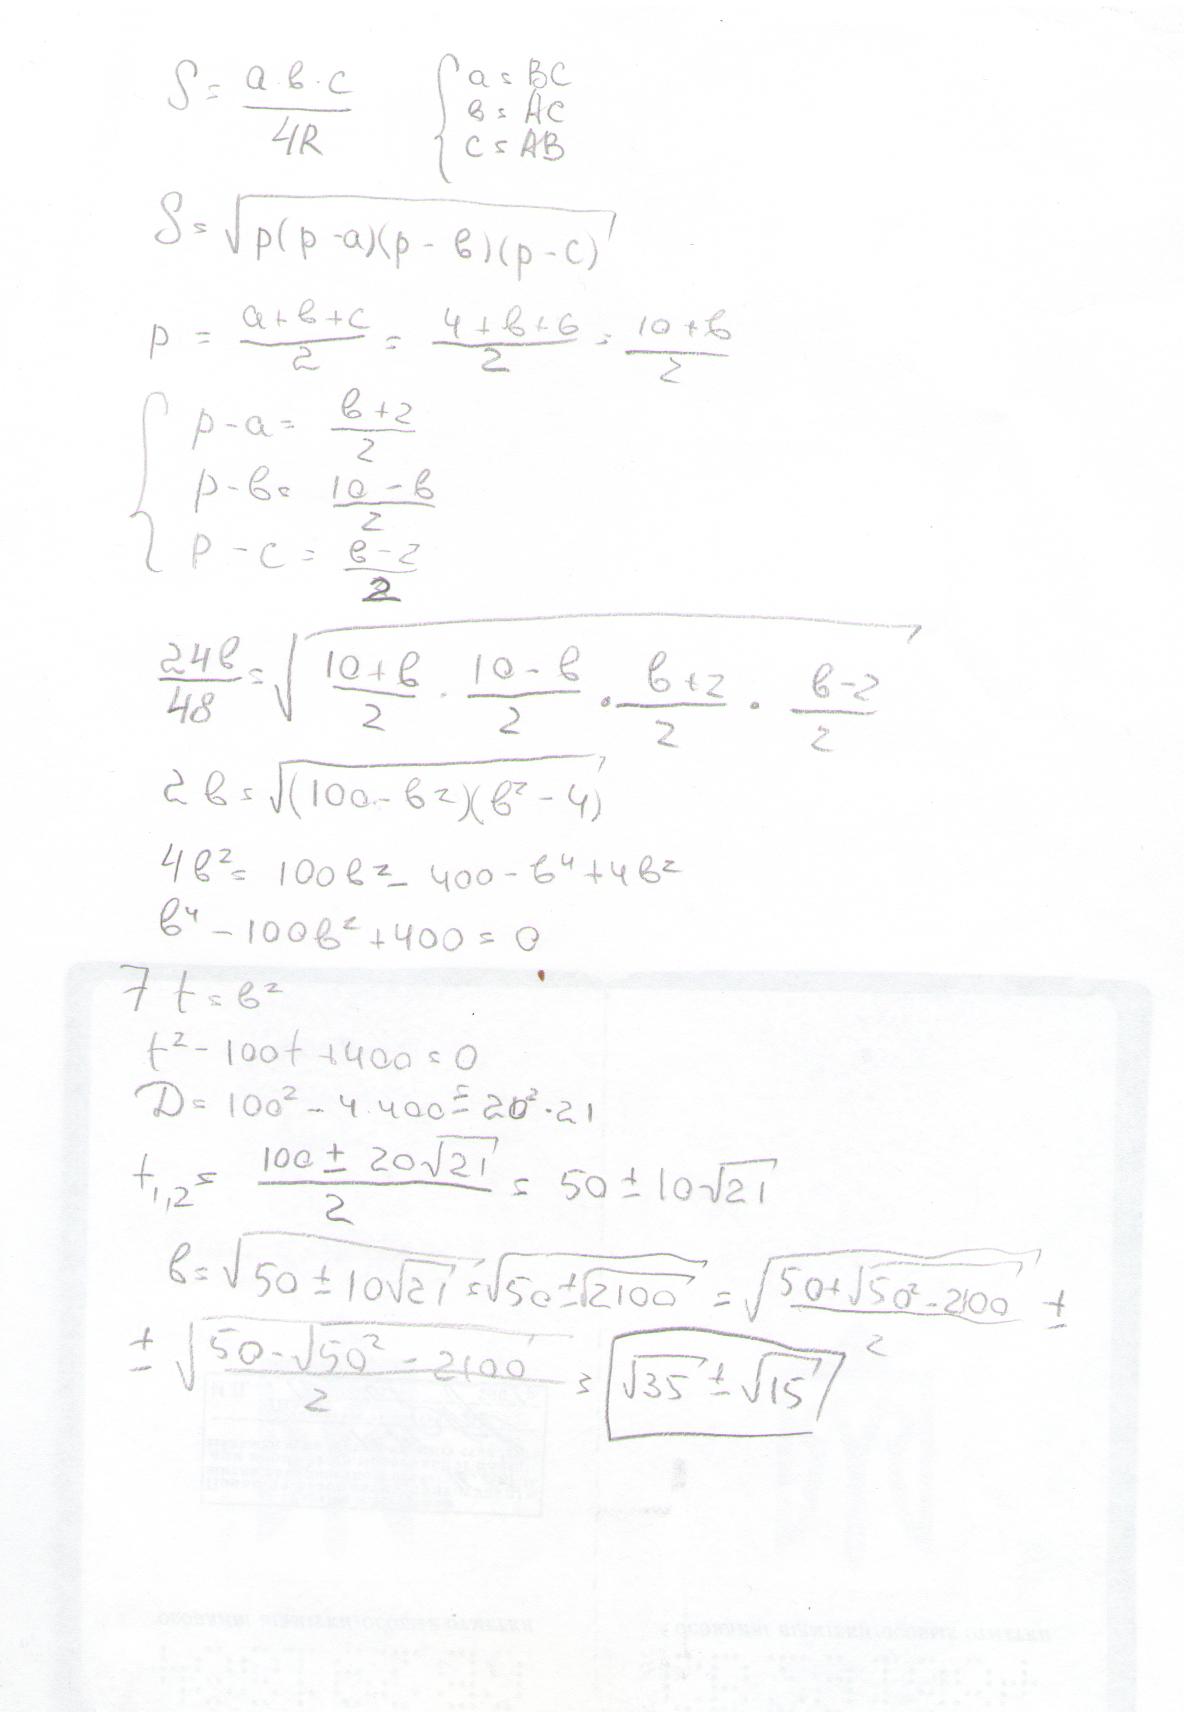 S = a·в·c / 4R { a = BC
в = AC
c = AB
S = √(p(p-a)(p-в)(p-c))
p = (a+в+c)/2 = (4+в+6)/2 = (10+в)/2
{ p-a = (в+2)/2
p-в = (10-в)/2
p-c = (в-2)/2
24в/48 = √((10+в)/2 · (10-в)/2 · (в+2)/2 · (в-2)/2)
2в = √((100-в²)(в²-4))
4в² = 100в² - 400 - в⁴ + 4в²
в⁴ - 100в² + 400 = 0
7 t = в²
t² - 100t + 400 = 0
D = 100² - 4·400 = 20²·21
t₁,₂ = (100 ± 20√21)/2 = 50 ± 10√21
в = √(50 ± 10√21) = √(50 ± √2100) = √((50+√(50²-2100))/2) ±
± √((50-√(50²-2100))/2) = √35 ± √15